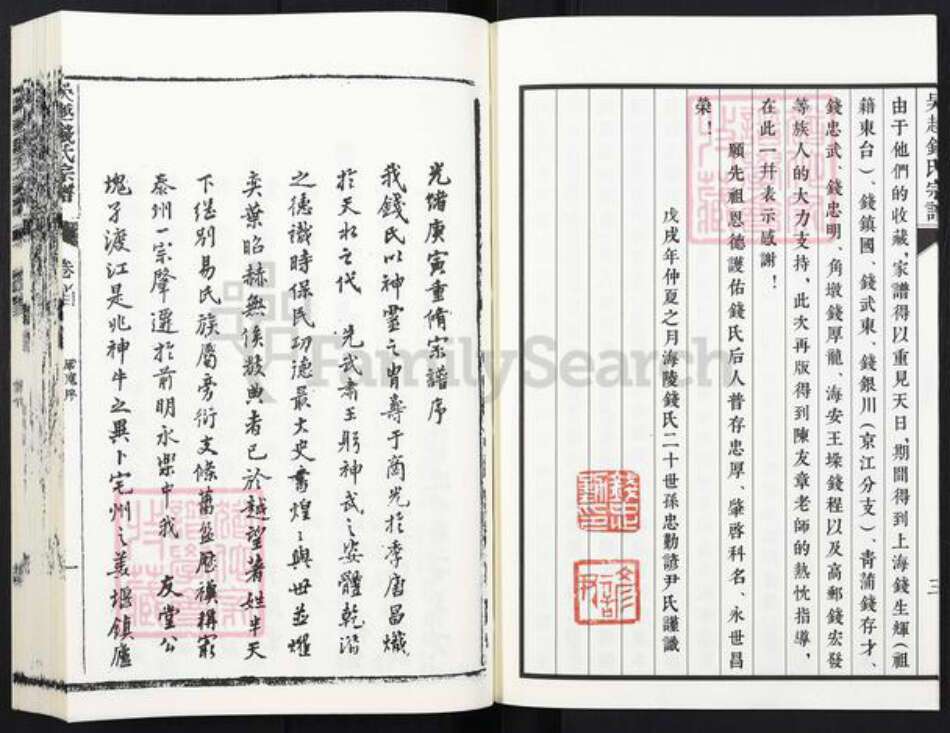 吳越錢氏宗譜
三
由于他們的收藏,家譜得以重見天日,期間得到上海錢生輝(祖
籍東台)、錢鎮國、錢武東、錢銀川(京江分支)、青蒲錢存才、
錢忠武、錢忠明、角墩錢厚龍、海安王垛錢程以及高郵錢宏發
等族人的大力支持,此次再版得到陳友章老師的熱忱指導,
在此一幷表示感謝!
願先祖恩德護佑錢氏后人普存忠厚、肇啓科名、永世昌
榮!
戊戌年仲夏之月海陵錢氏二十世孫忠勤諺尹氏謹識
光緒庚寅重脩宗譜序
我錢氏以神靈之胄壽于商光於季唐昌熾
於天水之代 先武肅王躬神武之姿體乾潛
之德識時保民功德最大史書煌〻與世並燿
奕葉昭赫無俟數典者已於越望著姓半天
下繼別易氏族屬旁衍支條舊盤歷禩稱寡
泰州一宗肇遷於前明永樂中我 友堂公
塊子渡江是兆神牛之異卜宅州之姜堰鎮廬
吳越錢氏宗譜
卷之首
一
FamilySearch